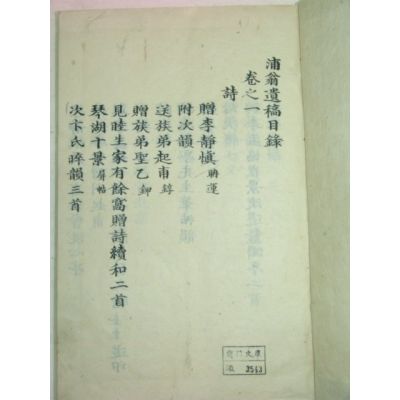 浦翁遺稿目錄
卷之一
詩
贈李靜愼
附次韻
送族弟起甫錞
贈族弟聖乙鉀
見睦生家有餘窩贈詩續和二首
琴湖十景屛帖
次卞氏晬韻三首
3543